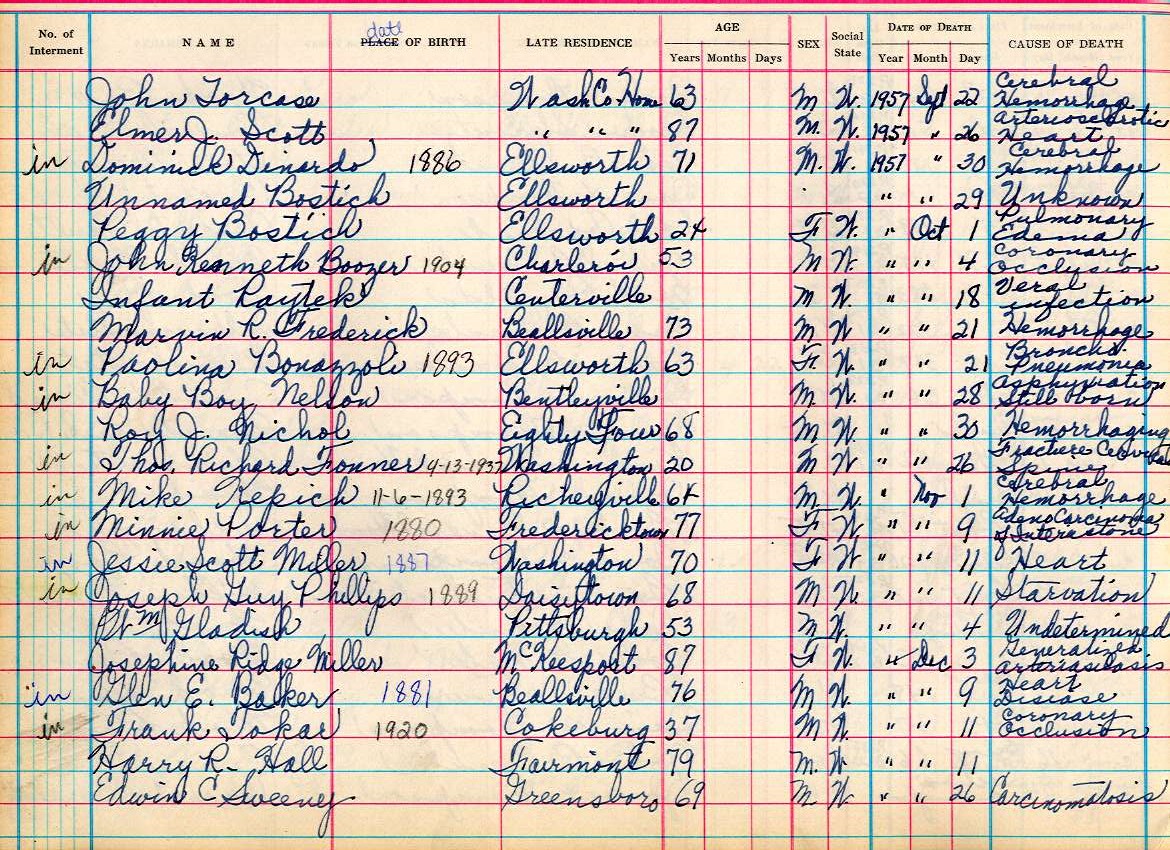 No. of Interment NAME date PLACE OF BIRTH LATE RESIDENCE AGE Years Months Days SEX Social State DATE OF DEATH Year Month Day CAUSE OF DEATH
John Torcase Wash Co. Home 63 M W. 1957 Sept 22 Cerebral Hemorrhage
Elmer J. Scott " " " 87 M. W. 1957 " 26 Arteriosclerotic Heart
in Dominick Dinardo 1886 Ellsworth 71 M. W. 1957 " 30 Cerebral Hemorrhage
Unnamed Bostich Ellsworth " " 29 Unknown
Peggy Bostich Ellsworth 24 F W. " Oct 1 Pulmonary Edema
in John Kenneth Boozer 1904 Charleroi 53 M W. " " 4 Coronary Occlusion
Infant Raytek Centerville M. W. " " 18 Veral infection
Marvin R. Frederick Beallsville 73 M W. " " 21 Hemorrhage
in Paolina Bonazzoli 1893 Ellsworth 63 F. W. " " 21 Broncho Pneumonia
in Baby Boy Nelson Bentleyville M. W. " " 28 Asphyxiation Still born
Roy J. Nichol Eighty Four 68 M W. " " 30 Hemorrhaging
in Thos. Richard Fonner 4-13-1937 Washington 20 M W " " 26 Fracture Spine
in Mike Repich 11-6-1893 Richeyville 64 M W. " Nov 1 Cerebral Hemorrhage
in Minnie Porter 1880 Fredericktown 77 F W. " " 9 Adeno Carcinoma of
in Jessie Scott Miller 1887 Washington 70 F W " " 11 Heart
in Joseph Guy Phillips 1889 Daisytown 68 M W. " " 11 Starvation
Wm Gladish Pittsburgh 53 M W. " " 4 Undetermined
Josephine Ridge Miller McKeesport 87 F W. " Dec 3 Generalized
in Glen E. Baker 1881 Beallsville 76 M W. " " 9 Heart Disease
in Frank Tokar 1920 Cokeburg 37 M W. " " 11 Coronary Occlusion
Harry R. Hall Fairmont 79 M. W. " " 11
Edwin C Sweeny Greensboro 69 M W. " " 26 Carcinomatosis